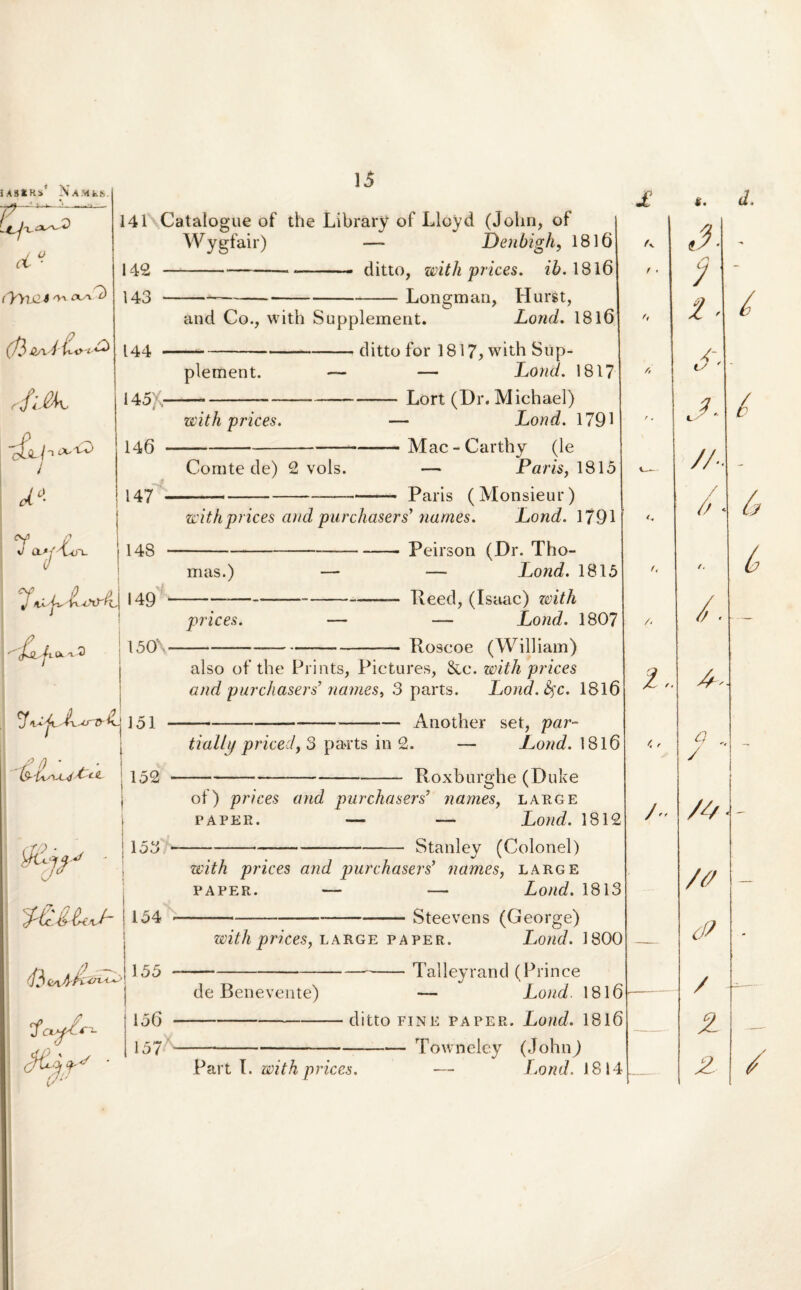 15
ASERS' NAMES.
£ s. d.
141 Catalogue of the Library of Lloyd (John, of
Wygfair) — Denbigh, 1816
3.
142 ——— ditto, with prices. ib. 1816
7
143 ——— Longman, Hurst,
and Co., with Supplement. Lond. 1816
2 6
144 ——— ditto for 1817, with Sup-
plement. — — Lond. 1817
5
145 ——— Lort (Dr. Michael)
with prices. — Lond. 1791
3. 6
146 ——— Mac-Carthy (le
Comte de) 2 vols. — Paris, 1815
11
147 ——— Paris (Monsieur)
with prices and purchasers' names. Lond. 1791
6
Taylor
148 ——— Peirson (Dr. Tho-
mas.) — — Lond. 1815
6
149 ——— Reed, (Isaac) with
prices. — — Lond. 1807
150 ——— Roscoe (William)
also of the Prints, Pictures, &c. with prices
and purchasers' names, 3 parts. Lond. &c. 1816
2 4
151 ——— Another set, par-
tially priced, 3 parts in 2. — Lond. 1816
152 ——— Roxburghe (Duke
of) prices and purchasers' names, LARGE
PAPER. — — Lond. 1812
1 14
153 ——— Stanley (Colonel)
with prices and purchasers' names, LARGE
PAPER. — — Lond. 1813
10
154 ——— Steevens (George)
with prices, LARGE PAPER. Lond. 1800
155 ——— Talleyrand (Prince
de Benevente) — Lond. 1816
1
Taylor
156 ——— ditto FINE PAPER. Lond. 1816
2
157 ——— Towneley (John)
Part I. with prices. — Lond. 1814
2